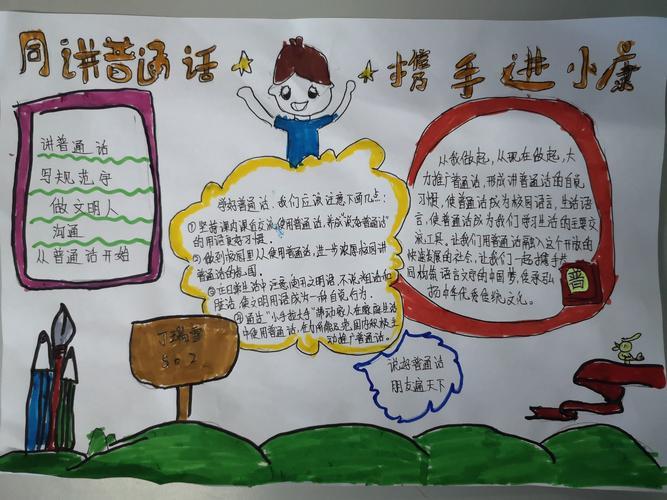 同讲普通话 携手进小康
讲普通话
写规范字
做文明人
沟通
从普通话开始
学好普通话，我们应该注意下面几点：
①坚持课内课后交流使用普通话，养成"说好普通话"
的用语良好习惯．
②做到校园里人人使用普通话，进一步浓厚校园讲
普通话的氛围．
③在日常生活中注意使用文明语不说粗话和
脏话，使文明用语成为一种自觉行为．
④通过"小手拉大手"带动家人在家庭生活
中使用普通话，在力所能及范围内积极主
动推广普通话。
从我做起，从现在做起，大
力推广普通话，形成讲普通话的自觉
习惯，使普通话成为校园语言，生活语
言，使普通话成为我们学习生活的主要交
流工具，让我们用普通话融入这个开放的
快速发展的社会，让我们一起携手共
同构筑语言文明的中国梦，传承弘
扬中华优秀传统文化。
普
丁瑞雪
502
说好普通话
朋友遍天下